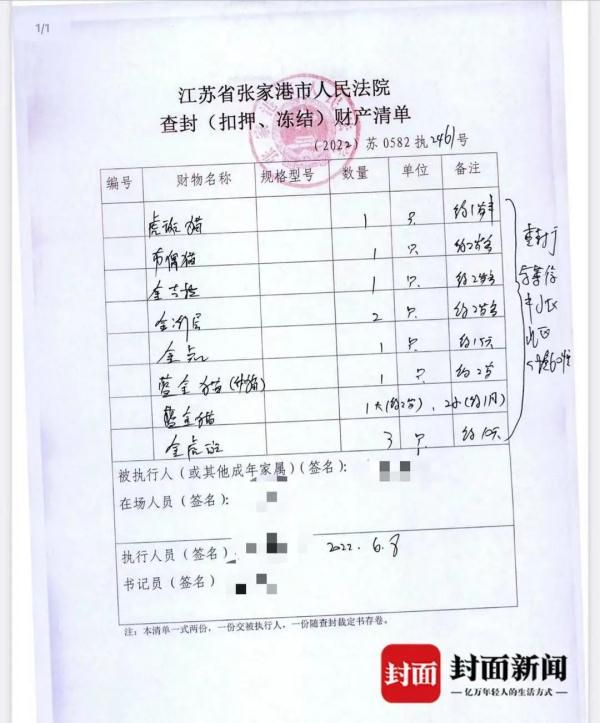 1/1
江苏省张家港市人民法院
查封（扣押、冻结）财产清单
（2022）苏 0582 执2461号
编号 财物名称 规格型号 数量 单位 备注
虎斑猫 1 只 约1岁半
布偶猫 1 只 约2岁多
金吉拉 1 只 约2岁多
金渐层 2 只 约2岁多
金点 1 只
蓝金猫 1 只 约2岁
蓝金猫 1大(约2岁)、2小(约1月)
金虎斑 3 只 约10天
查封于
被执行人（或其他成年家属）(签名)：
在场人员（签名）：
执行人员（签名） 2022.6.8
书记员（签名）
注：本清单一式两份，一份交被执行人，一份随查封裁定书存卷。
封面 封面新闻
亿万年轻人的生活方式